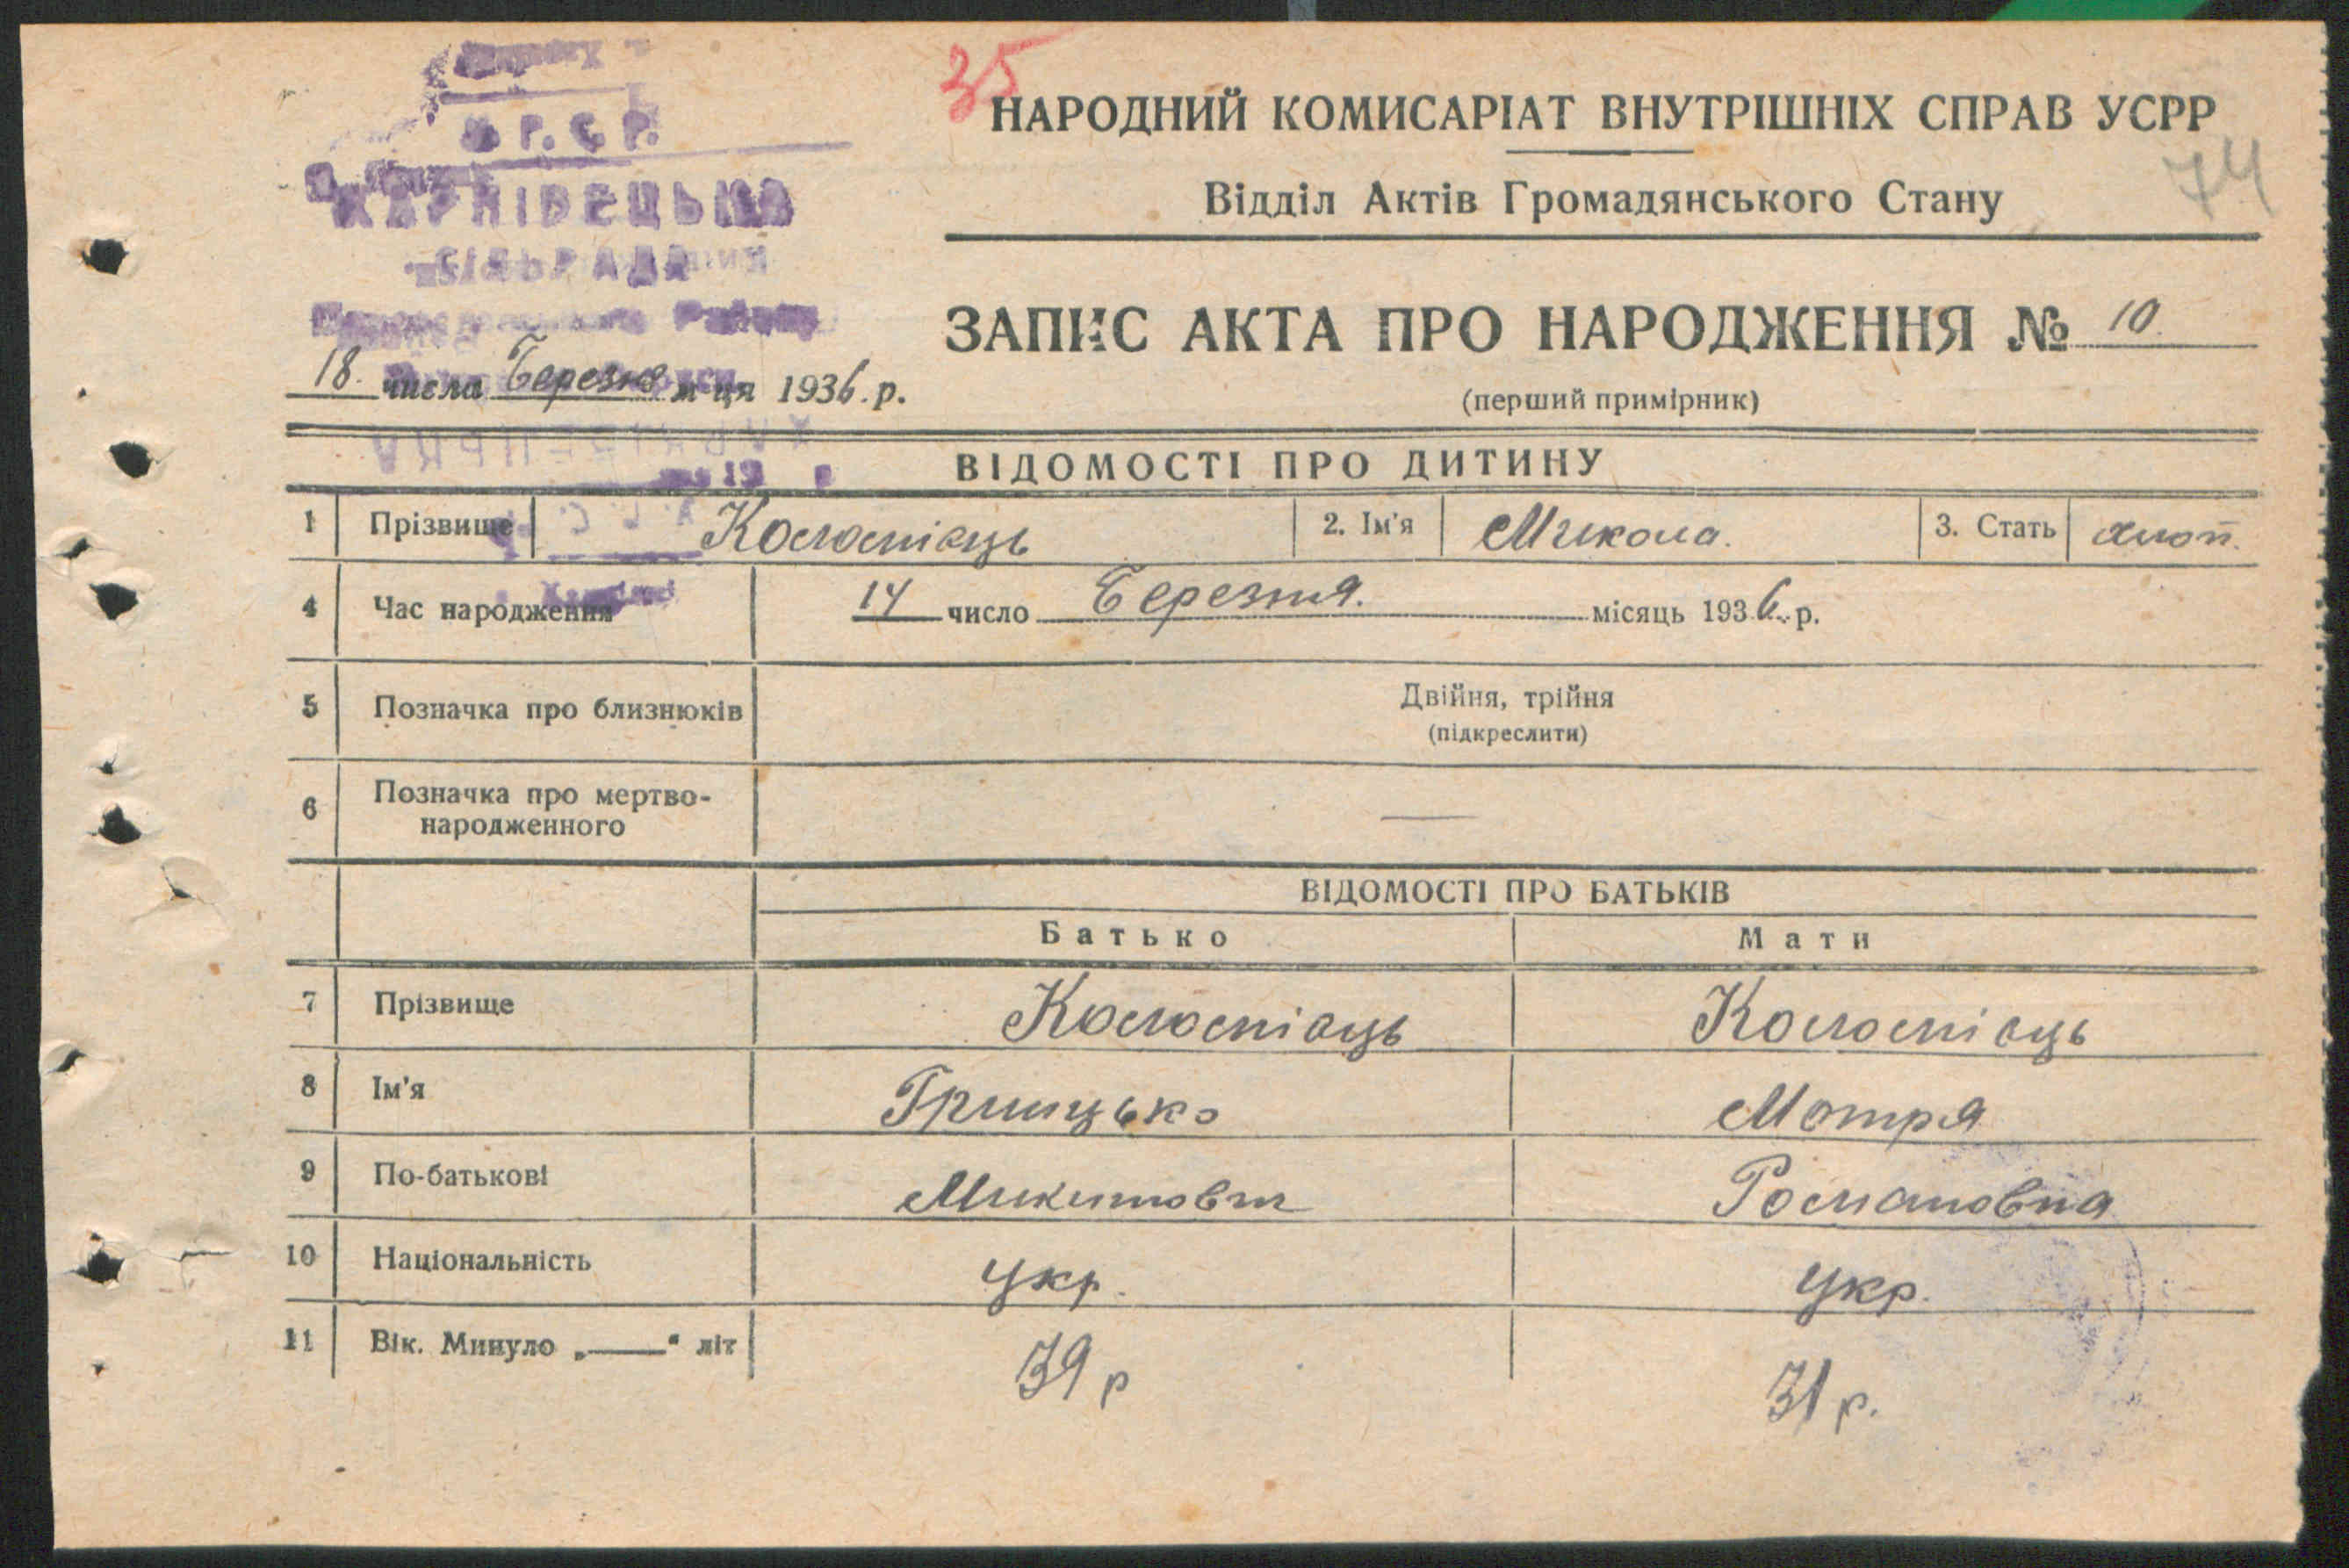 35
НАРОДНИЙ КОМИСАРІАТ ВНУТРІШНІХ СПРАВ УСРР
74
Відділ Актів Громадянського Стану
Р. С. Р.
ХАРКІВЕЦЬКА
СІЛЬРАДА
Району
ЗАПИС АКТА ПРО НАРОДЖЕННЯ № 10.
18. числа Березня м-ця 1936. р.
(перший примірник)
ВІДОМОСТІ ПРО ДИТИНУ
1 Прізвище Коломієць 2. Ім'я Микола. 3. Стать хлоп.
4 Час народження 14 число Березня. місяць 1936. р.
5 Позначка про близнюків Двійня, трійня
(підкреслити)
6 Позначка про мертво-
народженного —
ВІДОМОСТІ ПРО БАТЬКІВ
Батько Мати
7 Прізвище Коломієць Коломієць
8 Ім'я Грицько Мотря
9 По-батькові Микитович Романовна
10 Національність Укр. Укр.
11 Вік. Минуло „——“ літ 39 р 31 р.